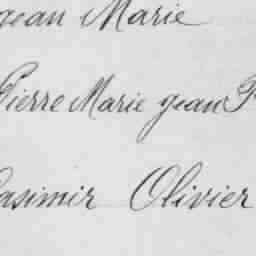 jean Marie
Pierre Marie jean P
Casimir Olivier